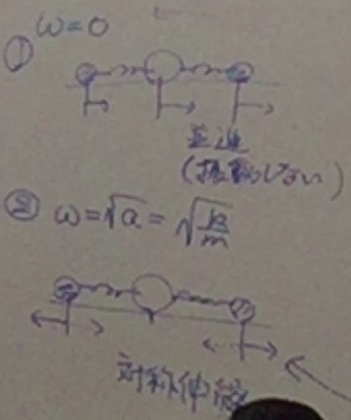 ① ω=0
並進
(振動しない)
② ω=√a=√k/m
対称伸縮